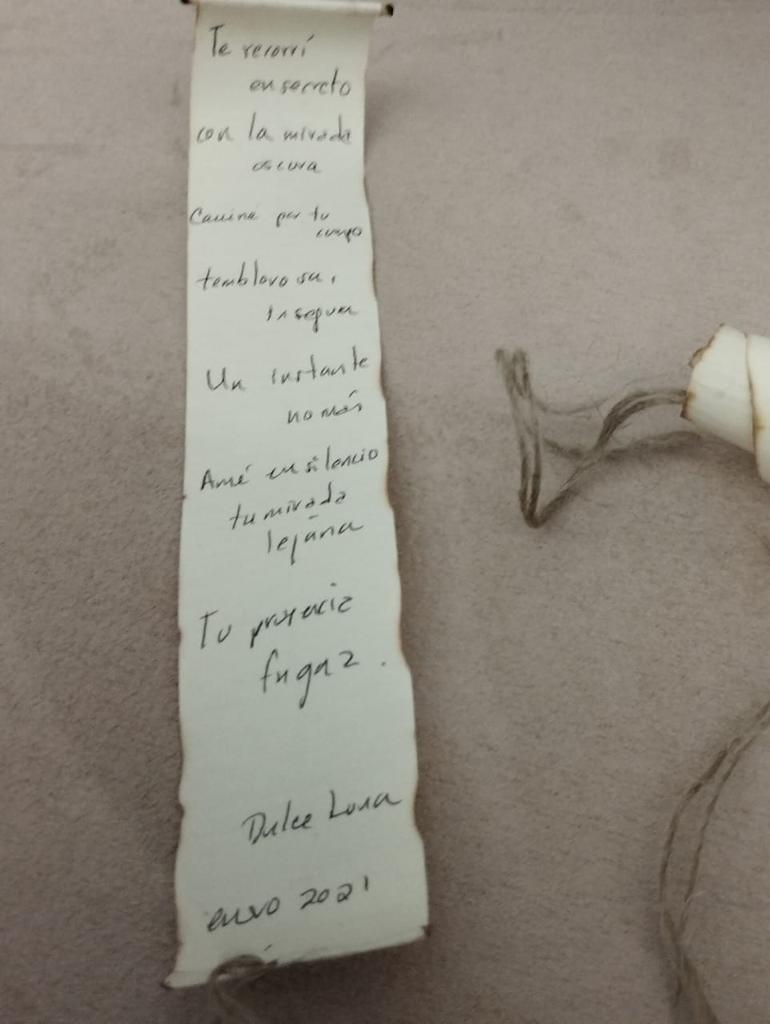 Te recorrí
en secreto
con la mirada
oscura
Caminé por tu
cuerpo
temblorosa,
insegura
Un instante
no más
Amé en silencio
tu mirada
lejana
Tu presencia
fugaz.
Dulce Luna
enero 2021